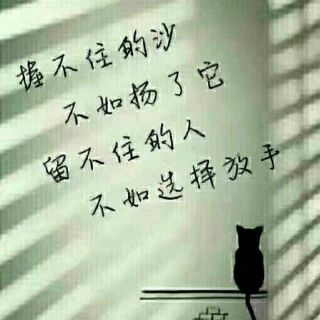 握不住的沙
不如扬了它
留不住的人
不如选择放手